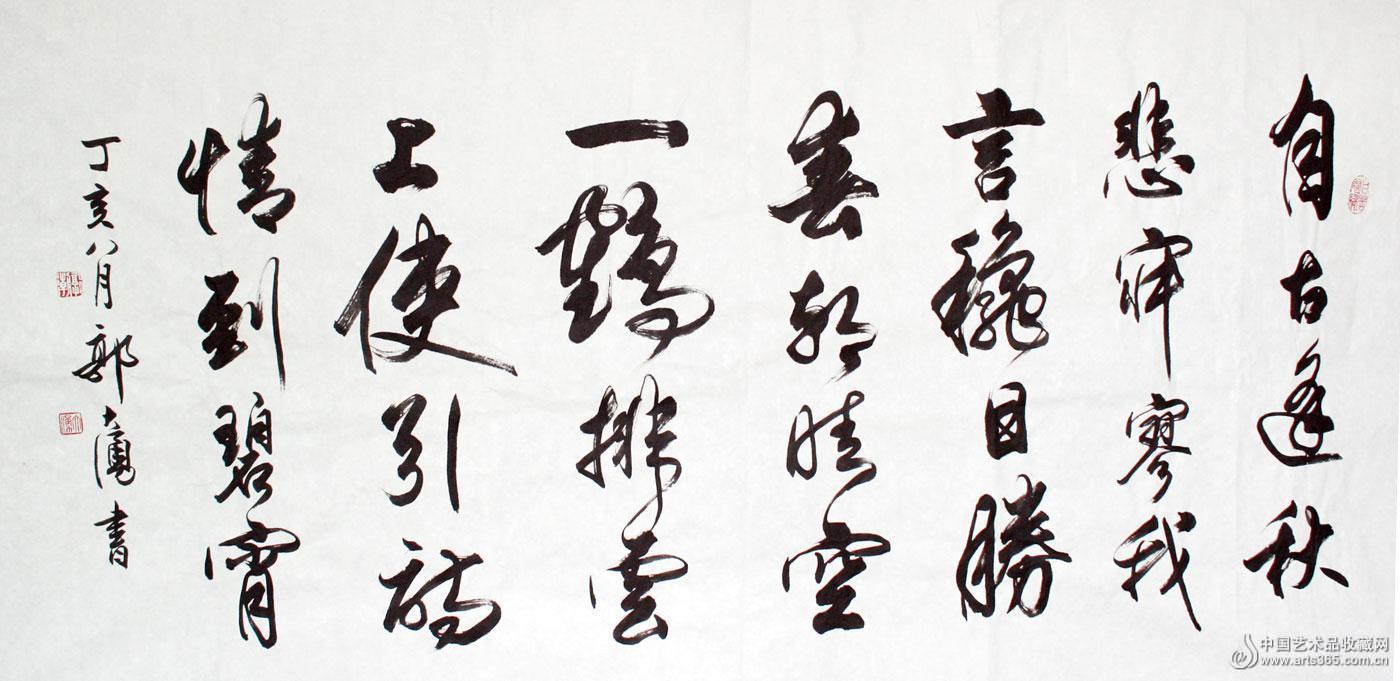 自古逢秋
悲寂寥我
言穐日勝
春朝晴空
一鶴排雲
上便引詩
情到碧霄
丁亥八月郭大書
中国艺术品收藏网
www.arts365.com.cn